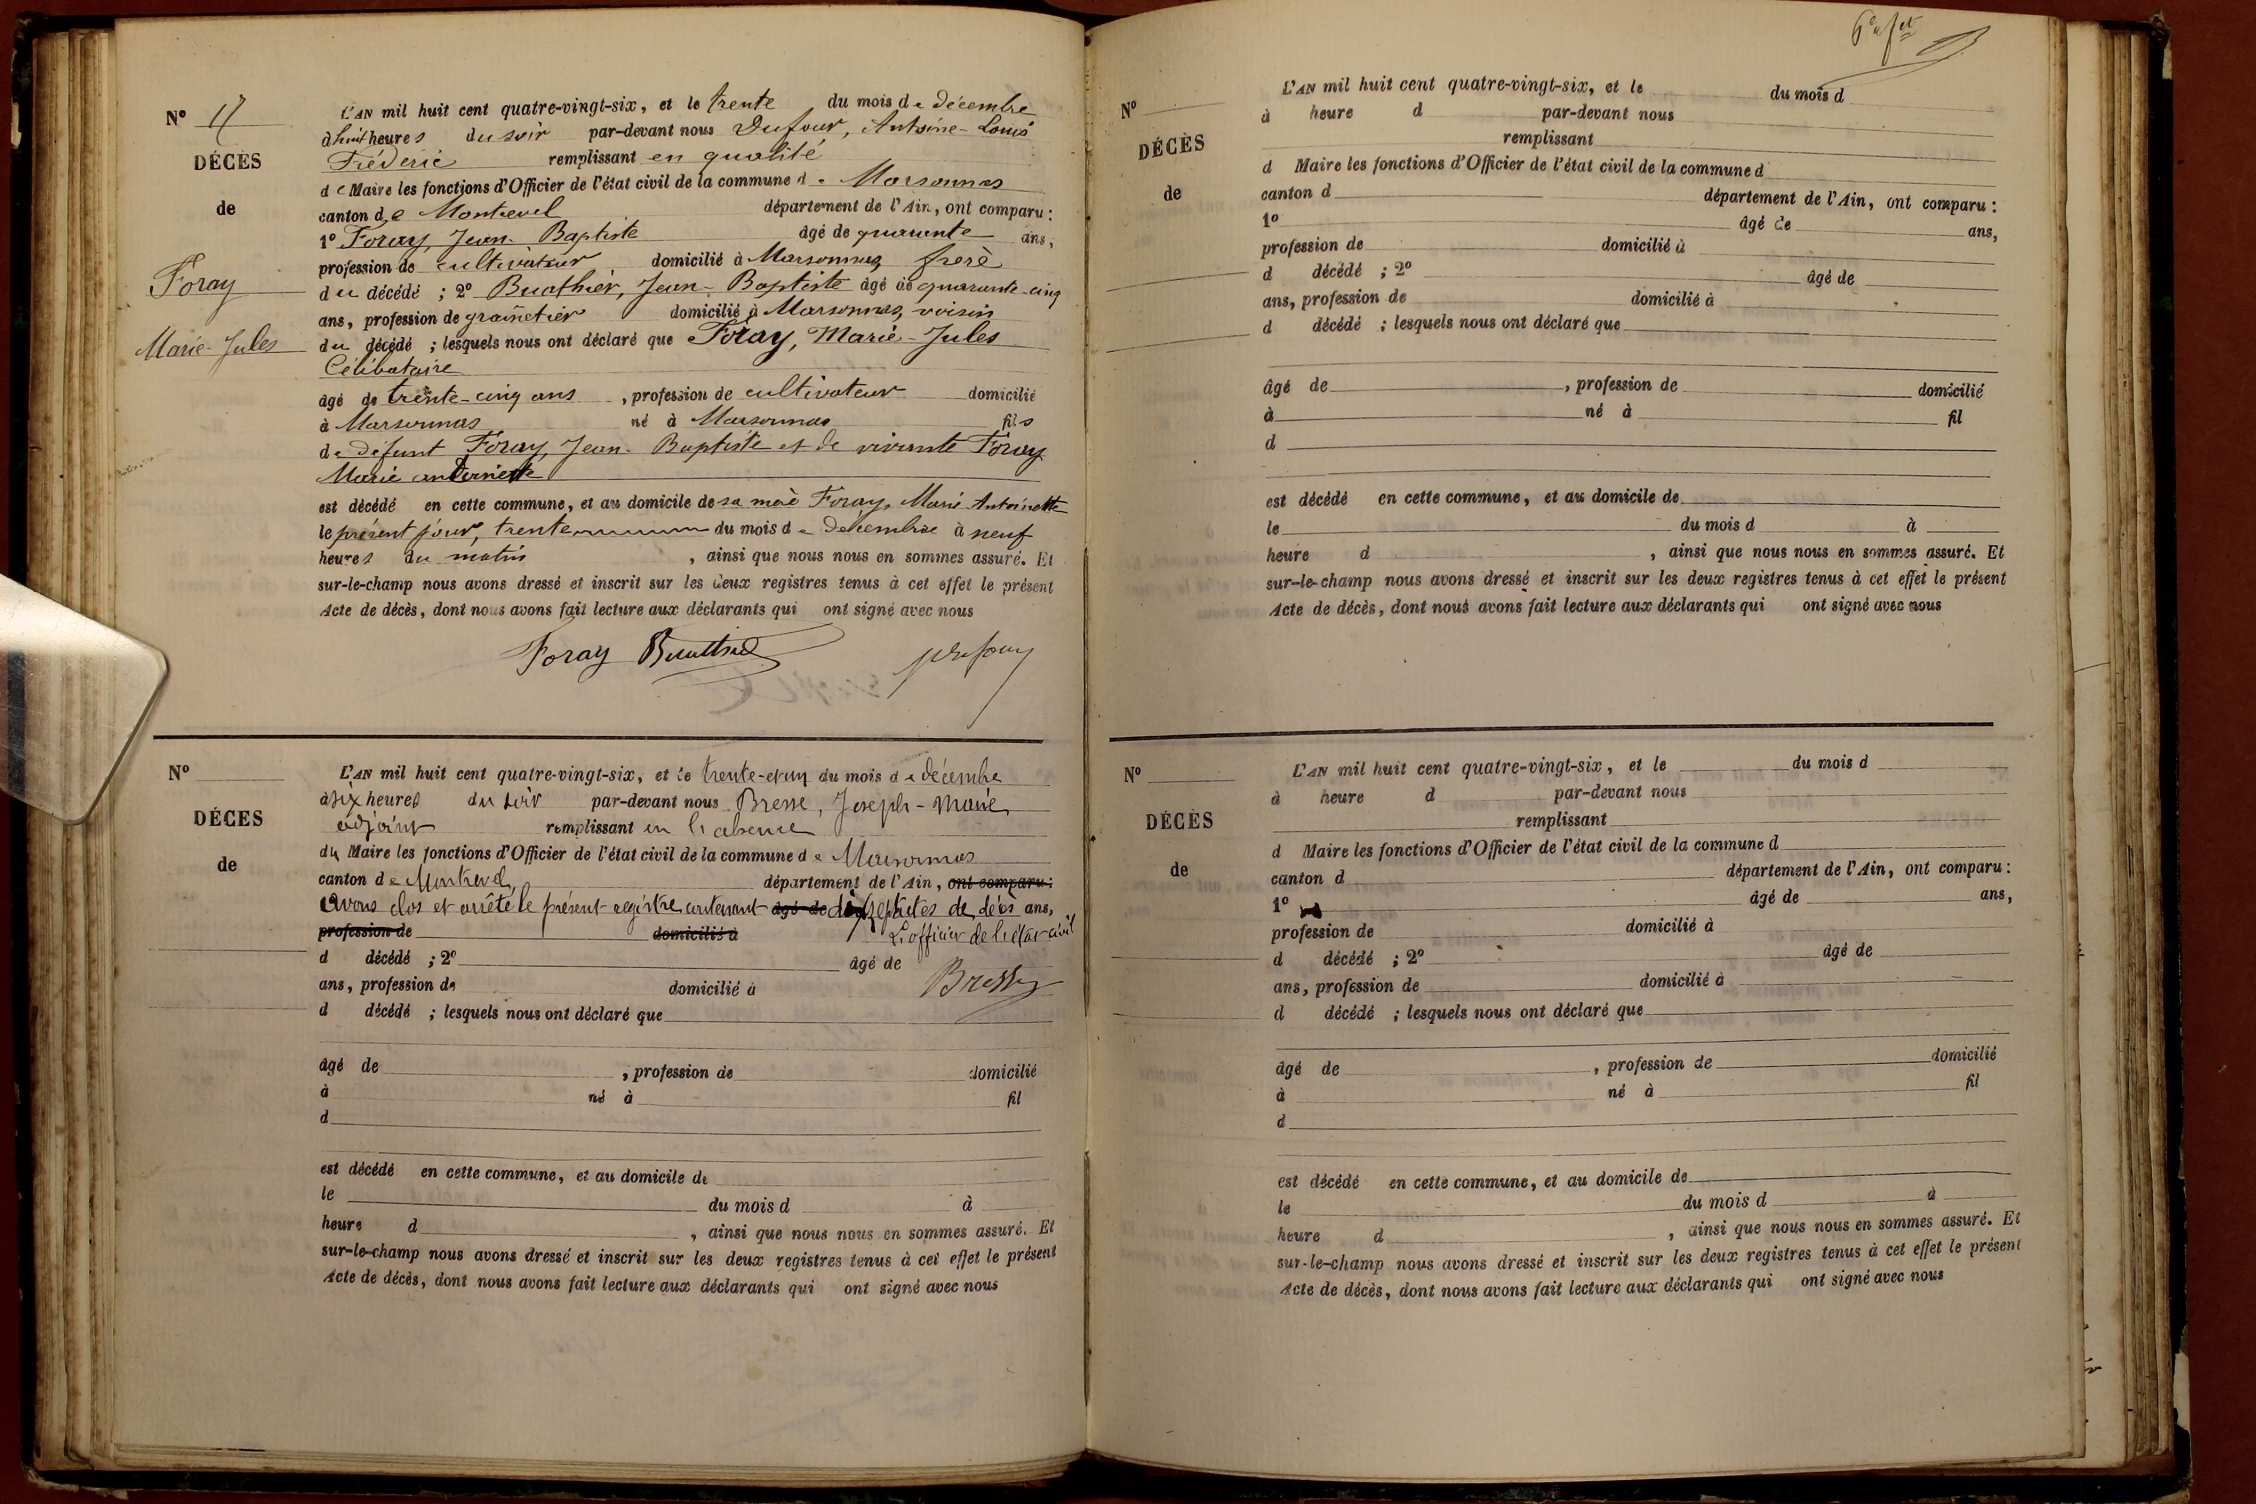 Nº 17
DÉCÈS
de
Foray
Marie-Jules
L'AN mil huit cent quatre-vingt-six, et le trente du mois de décembre
à huit heures du soir par-devant nous Dufour, Antoine-Louis
Fréderic remplissant en qualité
de Maire les fonctions d'Officier de l'état civil de la commune de Marsonnas
canton de Montrevel département de l'Ain, ont comparu :
1º Foray, Jean-Baptiste âgé de quarante ans,
profession de cultivateur domicilié à Marsonnas frerè
du décédé ; 2º Buathier, Jean-Baptiste âgé de quarante-cinq
ans, profession de grainetier domicilié à Marsonnas, voisin
du décédé ; lesquels nous ont déclaré que Foray, Marie-Jules
Célibataire
âgé de trente-cinq ans , profession de cultivateur domicilié
à Marsonnas né à Marsonnas fils
de défunt Foray, Jean-Baptiste et de vivante Foray
Marie antoinette
est décédé en cette commune, et au domicile de sa mère Foray, Marie-Antoinette
le présent jour, trente du mois de decembre à neuf
heures du matin , ainsi que nous nous en sommes assuré. Et
sur-le-champ nous avons dressé et inscrit sur les deux registres tenus à cet effet le présent
Acte de décès, dont nous avons fait lecture aux déclarants qui ont signé avec nous
Foray Buathier Dufour
Nº
DÉCES
de
L'AN mil huit cent quatre-vingt-six, et le trente-et-un du mois de décembre
à six heures du soir par-devant nous Bresse, Joseph-Marie,
adjoint remplissant en l'absence
du Maire les fonctions d'Officier de l'état civil de la commune de Marsonnas
canton de Montrevel, département de l'Ain, ont comparu :
avons clos et arrêté le présent registre contenant âgé de dix sept actes de décès ans,
profession de domicilié à L'officier de l'état civil
d décédé ; 2º âgé de
ans, profession de domicilié à Bresse
d décédé ; lesquels nous ont déclaré que
âgé de , profession de domicilié
à né à fil
d
est décédé en cette commune, et au domicile de
le du mois d à
heure d , ainsi que nous nous en sommes assuré. Et
sur-le-champ nous avons dressé et inscrit sur les deux registres tenus à cet effet le présent
Acte de décès, dont nous avons fait lecture aux déclarants qui ont signé avec nous
Nº
DÉCÈS
de
L'AN mil huit cent quatre-vingt-six, et le du mois d
à heure d par-devant nous
remplissant
d Maire les fonctions d'Officier de l'état civil de la commune d
canton d département de l'Ain, ont comparu :
1º âgé de ans,
profession de domicilié à
d décédé ; 2º âgé de
ans, profession de domicilié à
d décédé ; lesquels nous ont déclaré que
âgé de , profession de domicilié
à né à fil
d
est décédé en cette commune, et au domicile de
le du mois d à
heure d , ainsi que nous nous en sommes assuré. Et
sur-le-champ nous avons dressé et inscrit sur les deux registres tenus à cet effet le présent
Acte de décès, dont nous avons fait lecture aux déclarants qui ont signé avec nous
Nº
DÉCÈS
de
L'AN mil huit cent quatre-vingt-six, et le du mois d
à heure d par-devant nous
remplissant
d Maire les fonctions d'Officier de l'état civil de la commune d
canton d département de l'Ain, ont comparu :
1º âgé de ans,
profession de domicilié à
d décédé ; 2º âgé de
ans, profession de domicilié à
d décédé ; lesquels nous ont déclaré que
âgé de , profession de domicilié
à né à fil
d
est décédé en cette commune, et au domicile de
le du mois d à
heure d , ainsi que nous nous en sommes assuré. Et
sur-le-champ nous avons dressé et inscrit sur les deux registres tenus à cet effet le présent
Acte de décès, dont nous avons fait lecture aux déclarants qui ont signé avec nous